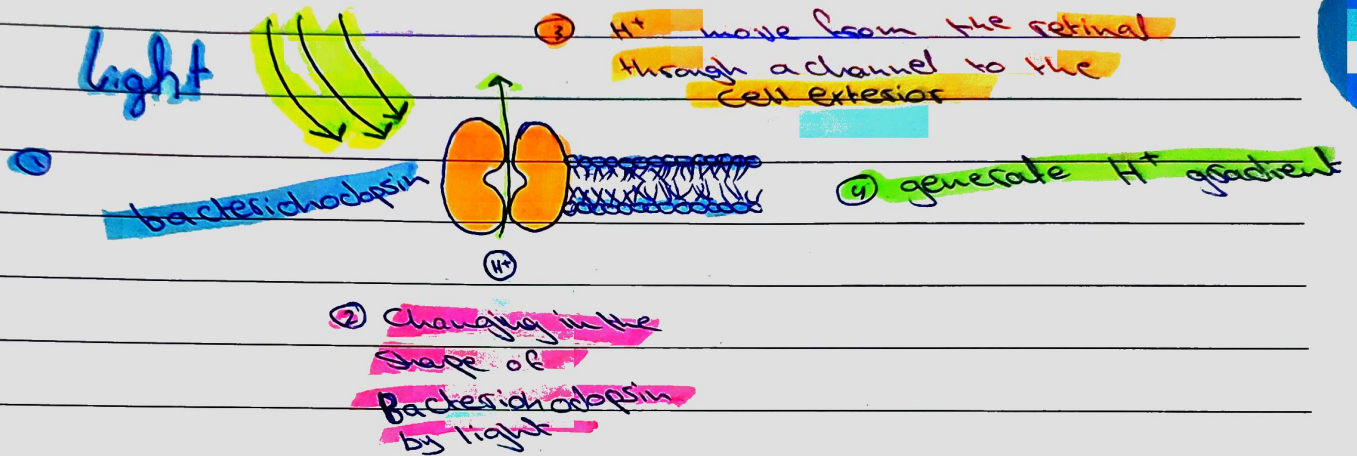 Light
③ H+ move from the retinal
through a channel to the
cell exterior
①
bacteriohodopsin
④ generate H+ gradient
H+
② Changing in the
shape of
Bacteriohodopsin
by light